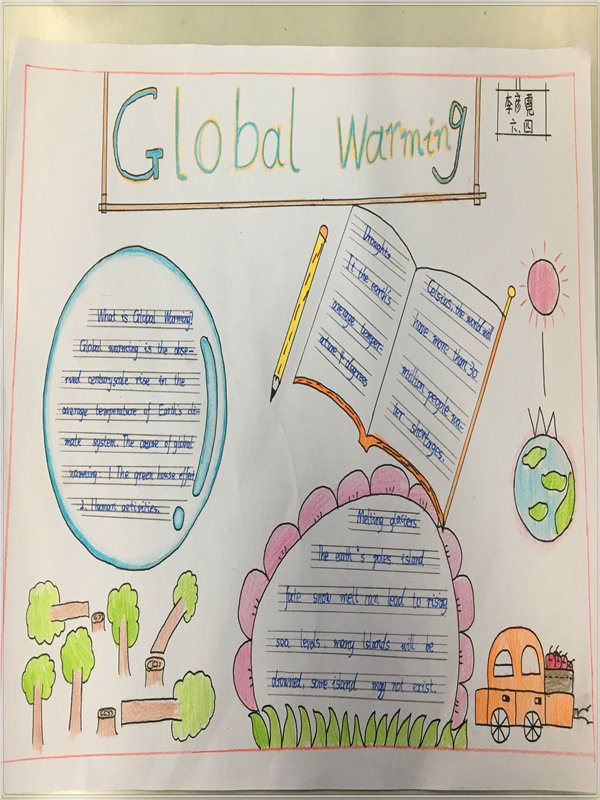 Global Warming
李彦霓
六、四
What is Global Warming?
Global warming is the obse-
rved century scale rise in the
average temperature of Earth's cli-
mate system. The cause of global
warming: 1 The green house effect
2. Human activities.
Drought.
It the earth's
average temper-
ature 4 degrees
Celsius, the world will
have more than 30
million people wa-
ter shortages.
Melting glaciers.
The earth's poles island
snow melt lead to rising
sea levels, many Islands will be
drowned, some island may not exist.